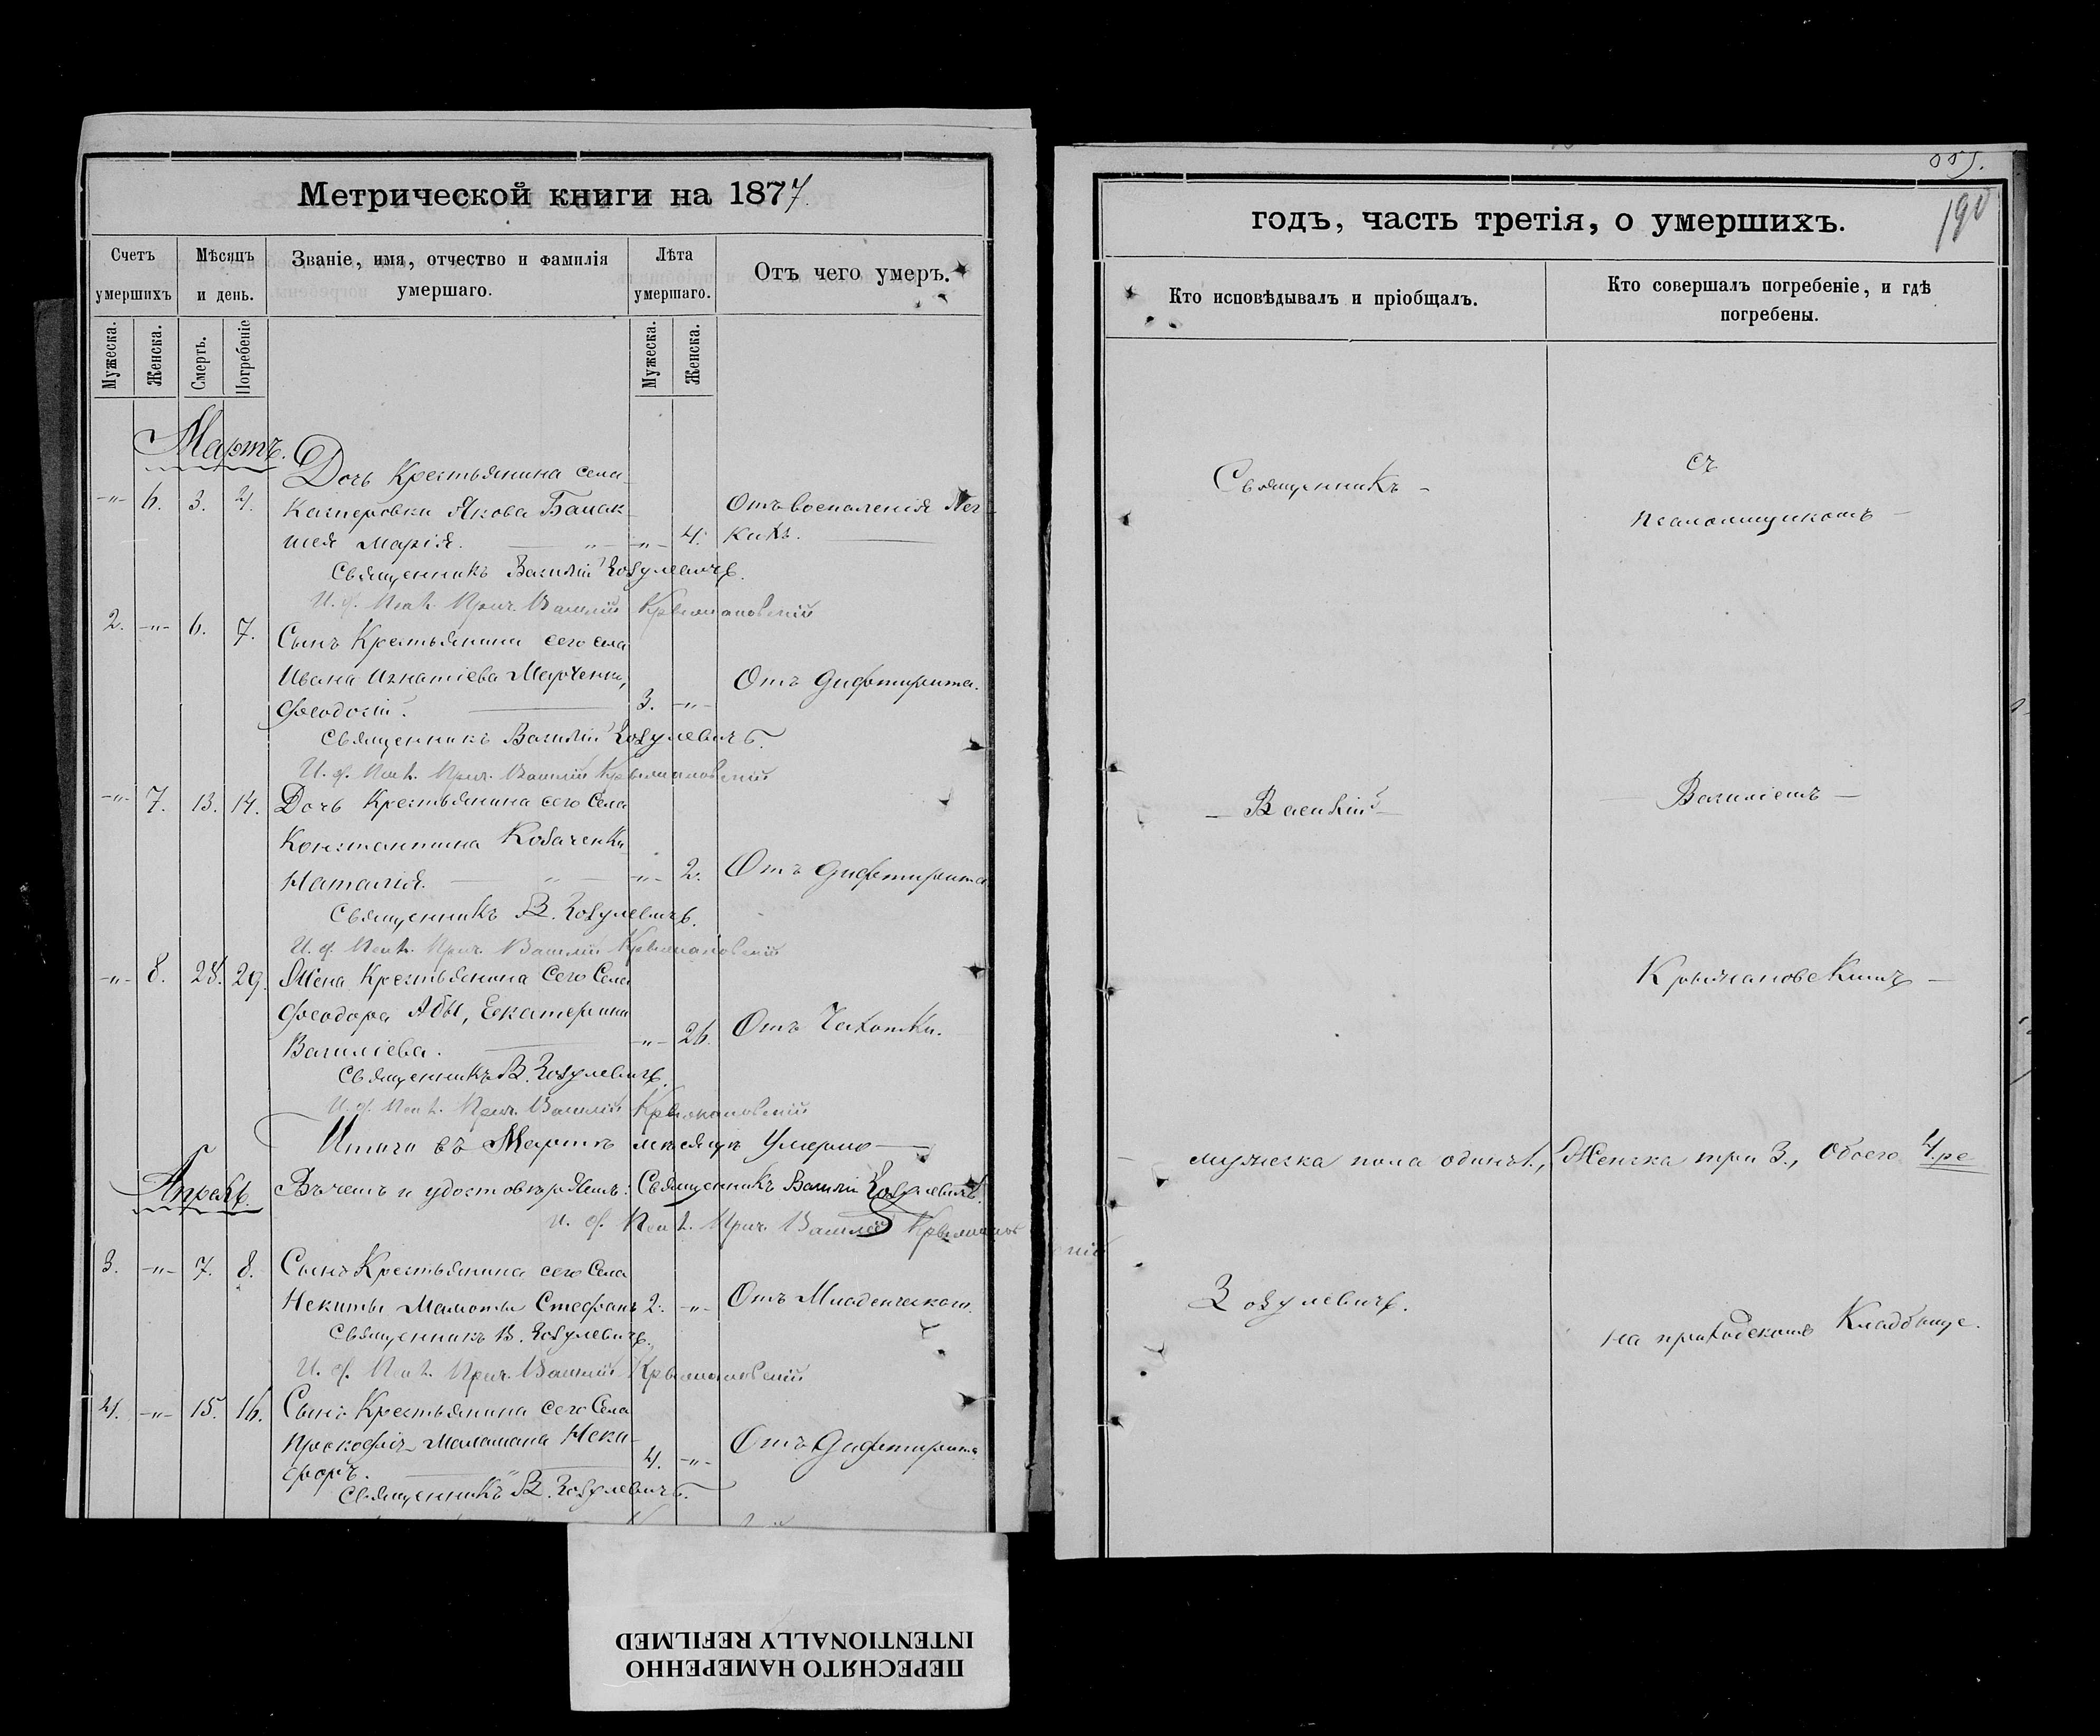 Метрической книги на 1877.
Счетъ умершихъ
Мѣсяцъ и день.
Званіе, имя, отчество и фамилія умершаго.
Лѣта умершаго.
Отъ чего умеръ.
Мужеска.
Женска.
Смерть.
Погребеніе
Мужеска.
Женска.
Мартъ.
Дочь Крестьянина села
-"- 6. 3. 4. Касперовки Якова Башак-
Отъ воспаленія Лег-
шея Марія. -"- 4. кихъ.
Священникъ Василій Зозулевичъ.
И. д. Псал. Прич. Василій Крыжановскій
2. -"- 6. 7. Сынъ Крестьянина сего села
Ивана Игнатіева Марченки,
Отъ дифтирита.
Феодосій. 3. -"-
Священникъ Василій Зозулевичъ.
И. д. Псал. Прич. Василій Крыжановскій
-"- 7. 13. 14. Дочь Крестьянина сего Села
Константина Кобаченки
Наталія. -"- 2. Отъ дифтирита
Священникъ В. Зозулевичъ.
И. д. Псал. Прич. Василій Крыжановскій
-"- 8. 28. 29. Жена Крестьянина Сего Села
Феодора Абы, Екатерина
Василіева. -"- 26. Отъ Чахотки.
Священникъ В. Зозулевичъ.
И. д. Псал. Прич. Василій Крыжановскій
Итого въ Мартѣ мѣсяцѣ Умерло
Апрѣль.
Въ чемъ и удостовѣряемъ: Священникъ Василій Зозулевичъ.
И. д. Псал. Прич. Василій Крыжановс
3. -"- 7. 8. Сынъ Крестьянина сего Села
Некиты Мамоты Стефанъ 2. -"- Отъ Младенческаго.
Священникъ В. Зозулевичъ.
И. д. Псал. Прич. Василій Крыжановскій
4. -"- 15. 16. Сынъ Крестьянина сего Села
Прокофія Маламана Неки-
форъ. 4. -"- Отъ Дифтирита
Священникъ В. Зозулевичъ.
190
годъ, часть третія, о умершихъ.
Кто исповѣдывалъ и пріобщалъ.
Кто совершалъ погребеніе, и гдѣ погребены.
Священникъ -
съ
псаломщикомъ -
- Василій -
- Василіемъ -
Крыжановскимъ -
мужеска пола одинъ 1., Женска три 3., Обоего 4.ре
кій
Зозулевичъ.
на приходскомъ Кладбище.
ПЕРЕСНЯТО НАМЕРЕННО
INTENTIONALLY REFILMED